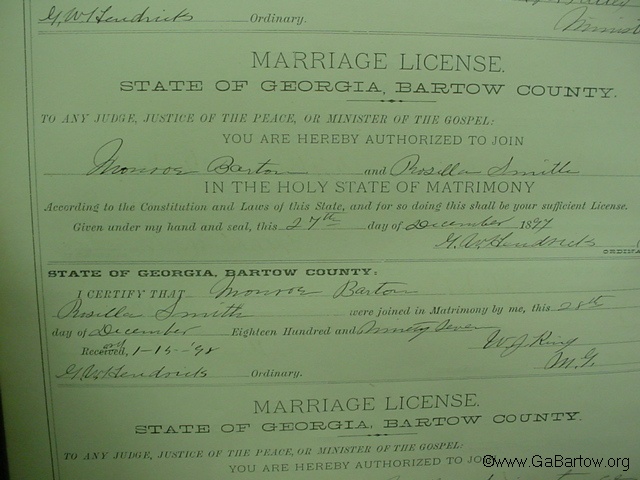 G.W. Hendricks Ordinary.
MARRIAGE LICENSE.
STATE OF GEORGIA, BARTOW COUNTY.
TO ANY JUDGE, JUSTICE OF THE PEACE, OR MINISTER OF THE GOSPEL:
YOU ARE HEREBY AUTHORIZED TO JOIN
Monroe Barton and Rosilla Smith
IN THE HOLY STATE OF MATRIMONY
According to the Constitution and Laws of this State, and for so doing this shall be your sufficient License.
Given under my hand and seal, this 27th day of December 1897
G.W. Hendricks
ORDINA
STATE OF GEORGIA, BARTOW COUNTY:
I CERTIFY THAT Monroe Barton
Rosilla Smith were joined in Matrimony by me, this 28th
day of December Eighteen Hundred and Ninety Seven
W.J. King
Received, 1-15-'98
M.G.
G.W. Hendricks Ordinary.
MARRIAGE LICENSE.
STATE OF GEORGIA, BARTOW COUNTY.
TO ANY JUDGE, JUSTICE OF THE PEACE, OR MINISTER OF THE GOSPEL:
YOU ARE HEREBY AUTHORIZED TO JOIN
©www.GaBartow.org